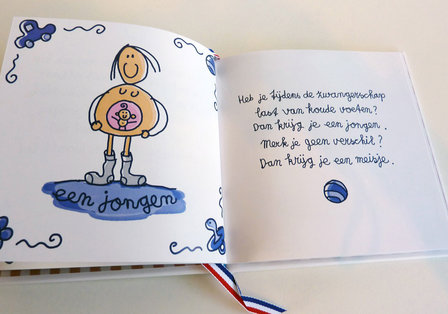 een jongen
Heb je tijdens de zwangerschap
last van koude voeten?
Dan krijg je een jongen.
Merk je geen verschil?
Dan krijg je een meisje.